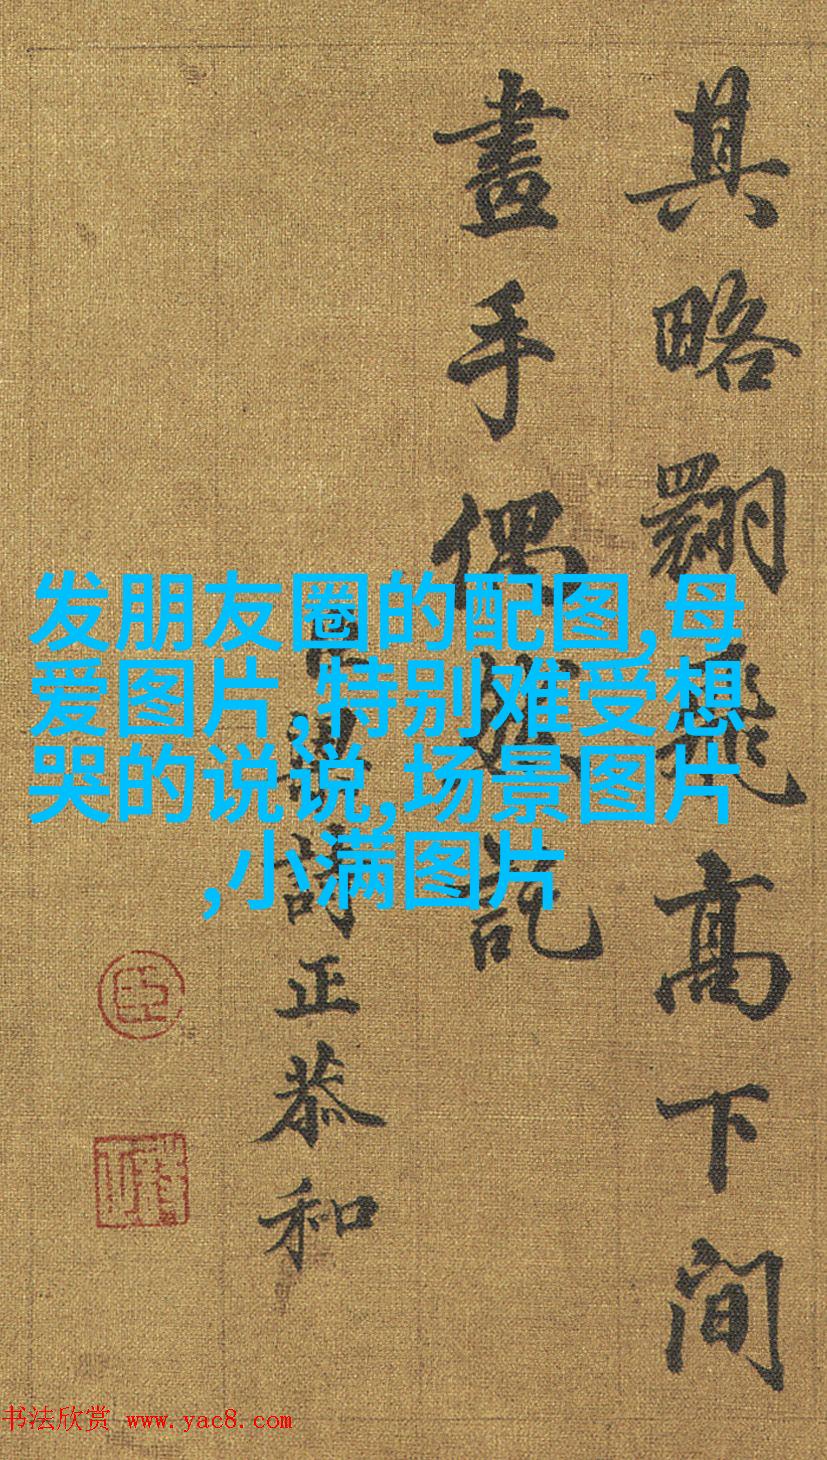 其略翾飛高下間
畫手偶
訖
詩正恭和
臣
发朋友圈的配图,母
爱图片,特别难受想
哭的说说,场景图片
,小满图片
书法欣赏 www.yac8.com